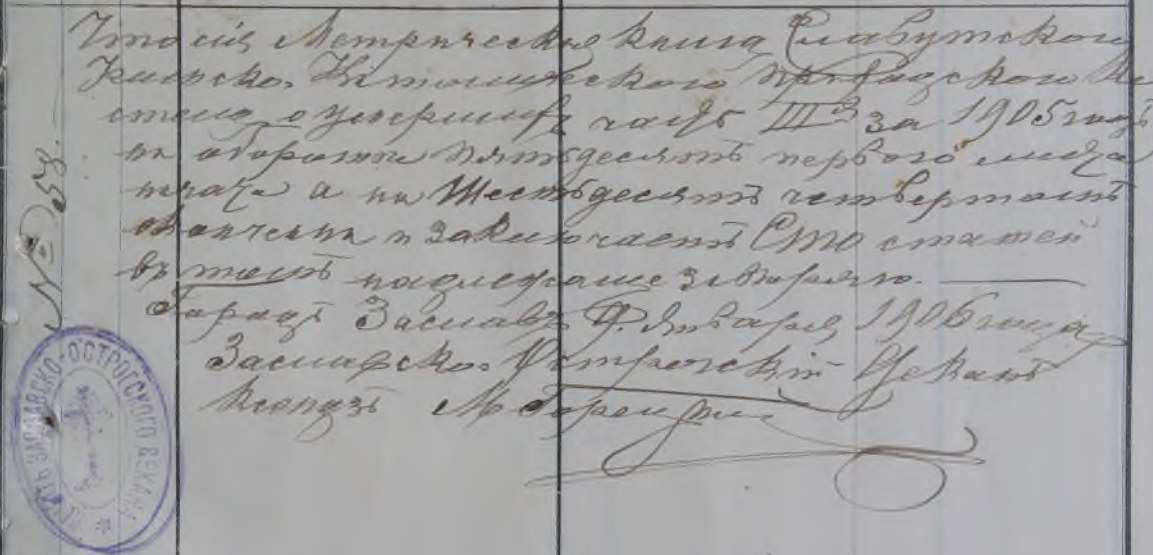 Что сія Метрическая книга Славутского
Римско-Католического Приходского Ко
стела о умершихъ часть III за 1905 годъ
на оборотѣ пятьдесятъ перваго листа
начата а на Шестьдесятъ четвертомъ
окончена и заключаетъ Сто статей
въ томъ надлежаще завѣряю.
Городъ Заславъ Января 1906 года
Заславско-Острожскій Деканъ
Ксендзъ М
№ 58.
ПЕЧАТЬ ЗАСЛАВСКО-ОСТРОГСКОГО ДЕКАНА